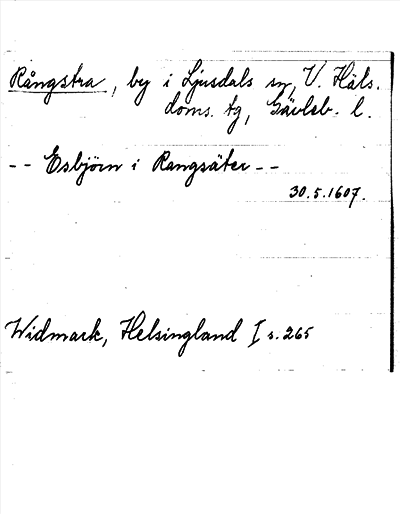 Rångstra, by i Ljusdals sn, V. Häls.
doms. tg, Gävleb. l.
-- Esbjörn i Rangsäter --
30.5.1607.
Widmark, Helsingland I s. 265